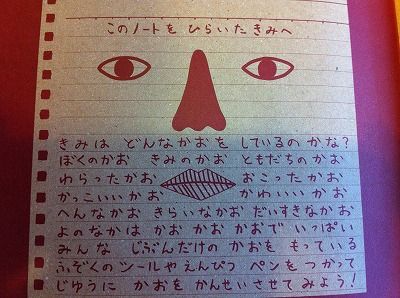 このノートを ひらいたきみへ
きみは どんなかおを しているのかな?
ぼくのかお きみのかお ともだちのかお
わらったかお おこったかお
かっこいいかお かわいいかお
へんなかお きらいなかお だいすきなかお
よのなかは かお かお かおで いっぱい
みんな じぶんだけの かおを もっている
ふぞくのシールやえんぴつ ペンを つかって
じゆうに かおを かんせいさせてみよう!